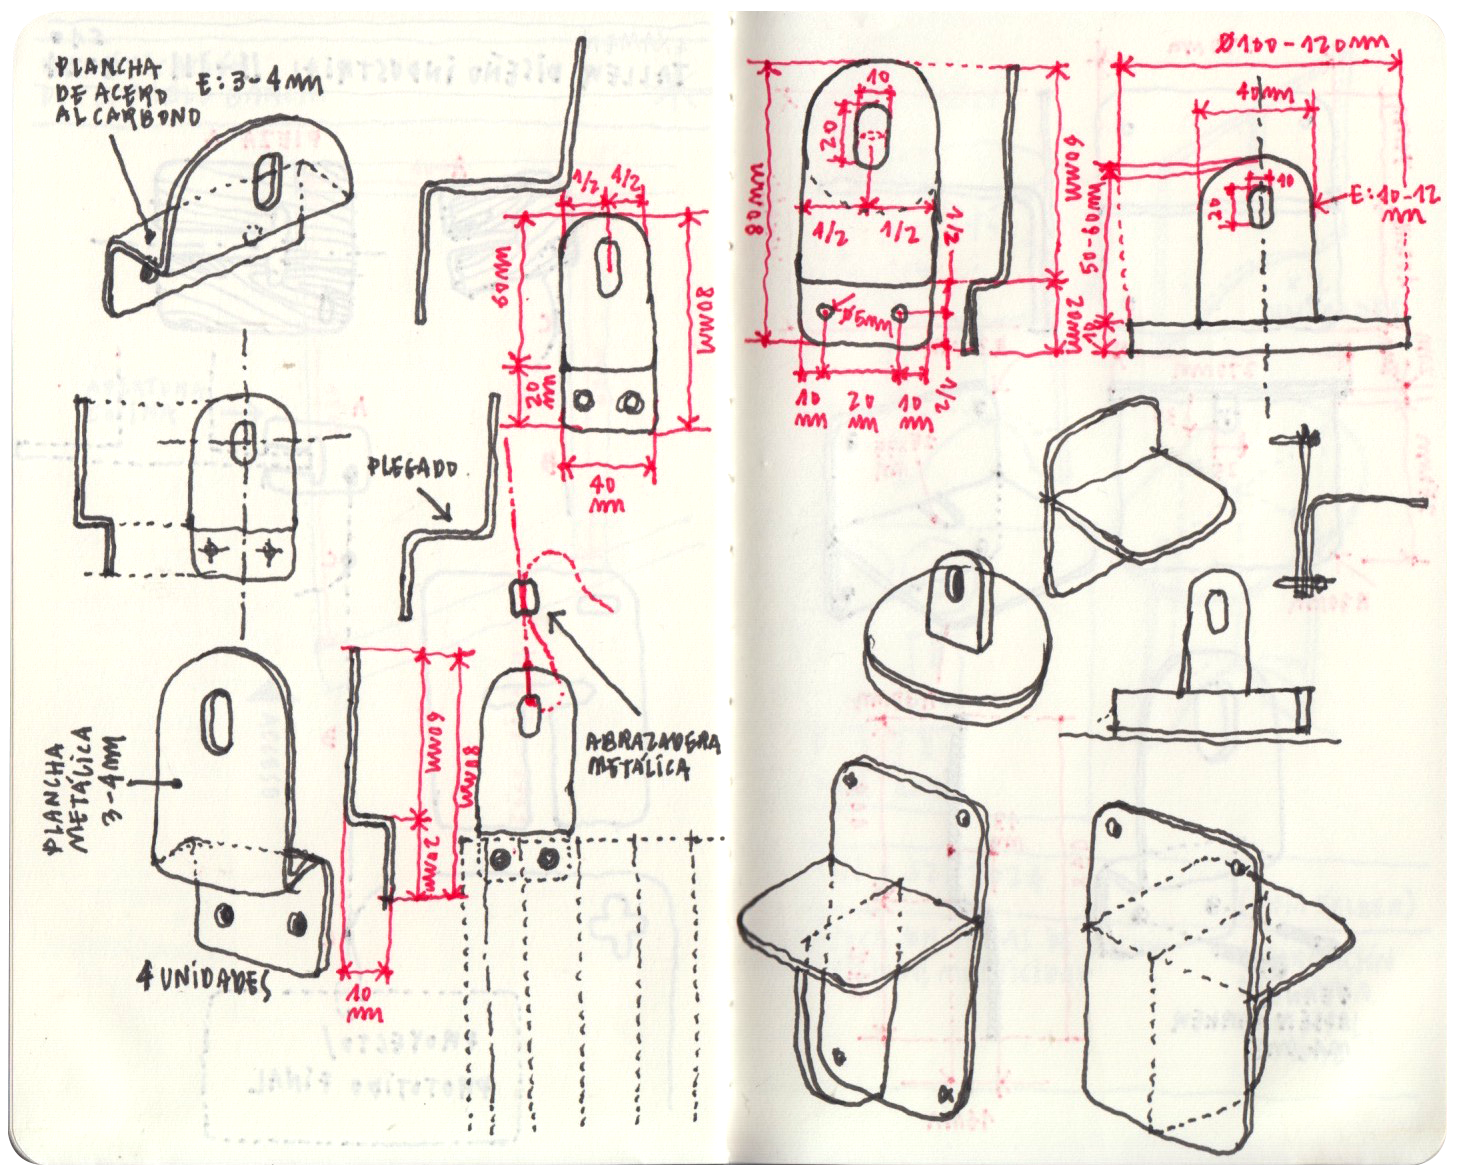 PLANCHA
DE ACERO
AL CARBONO
E: 3-4mm
1/2 1/2
60mm
80mm
20
mm
40
mm
PLEGADO
ABRAZADERA
METÁLICA
PLANCHA
METÁLICA
3-4mm
60mm
80mm
20mm
10
mm
4 UNIDADES
10
20
80mm
60mm
1/2 1/2
1/2
Ø5mm
20mm
1/2
10 20 10
mm mm mm
Ø100-120mm
40mm
10
20
50-60mm
E: 10-12
mm
10
TALLER DISEÑO INDUSTRIAL
PROYECTO/
PROTOTIPO FINAL